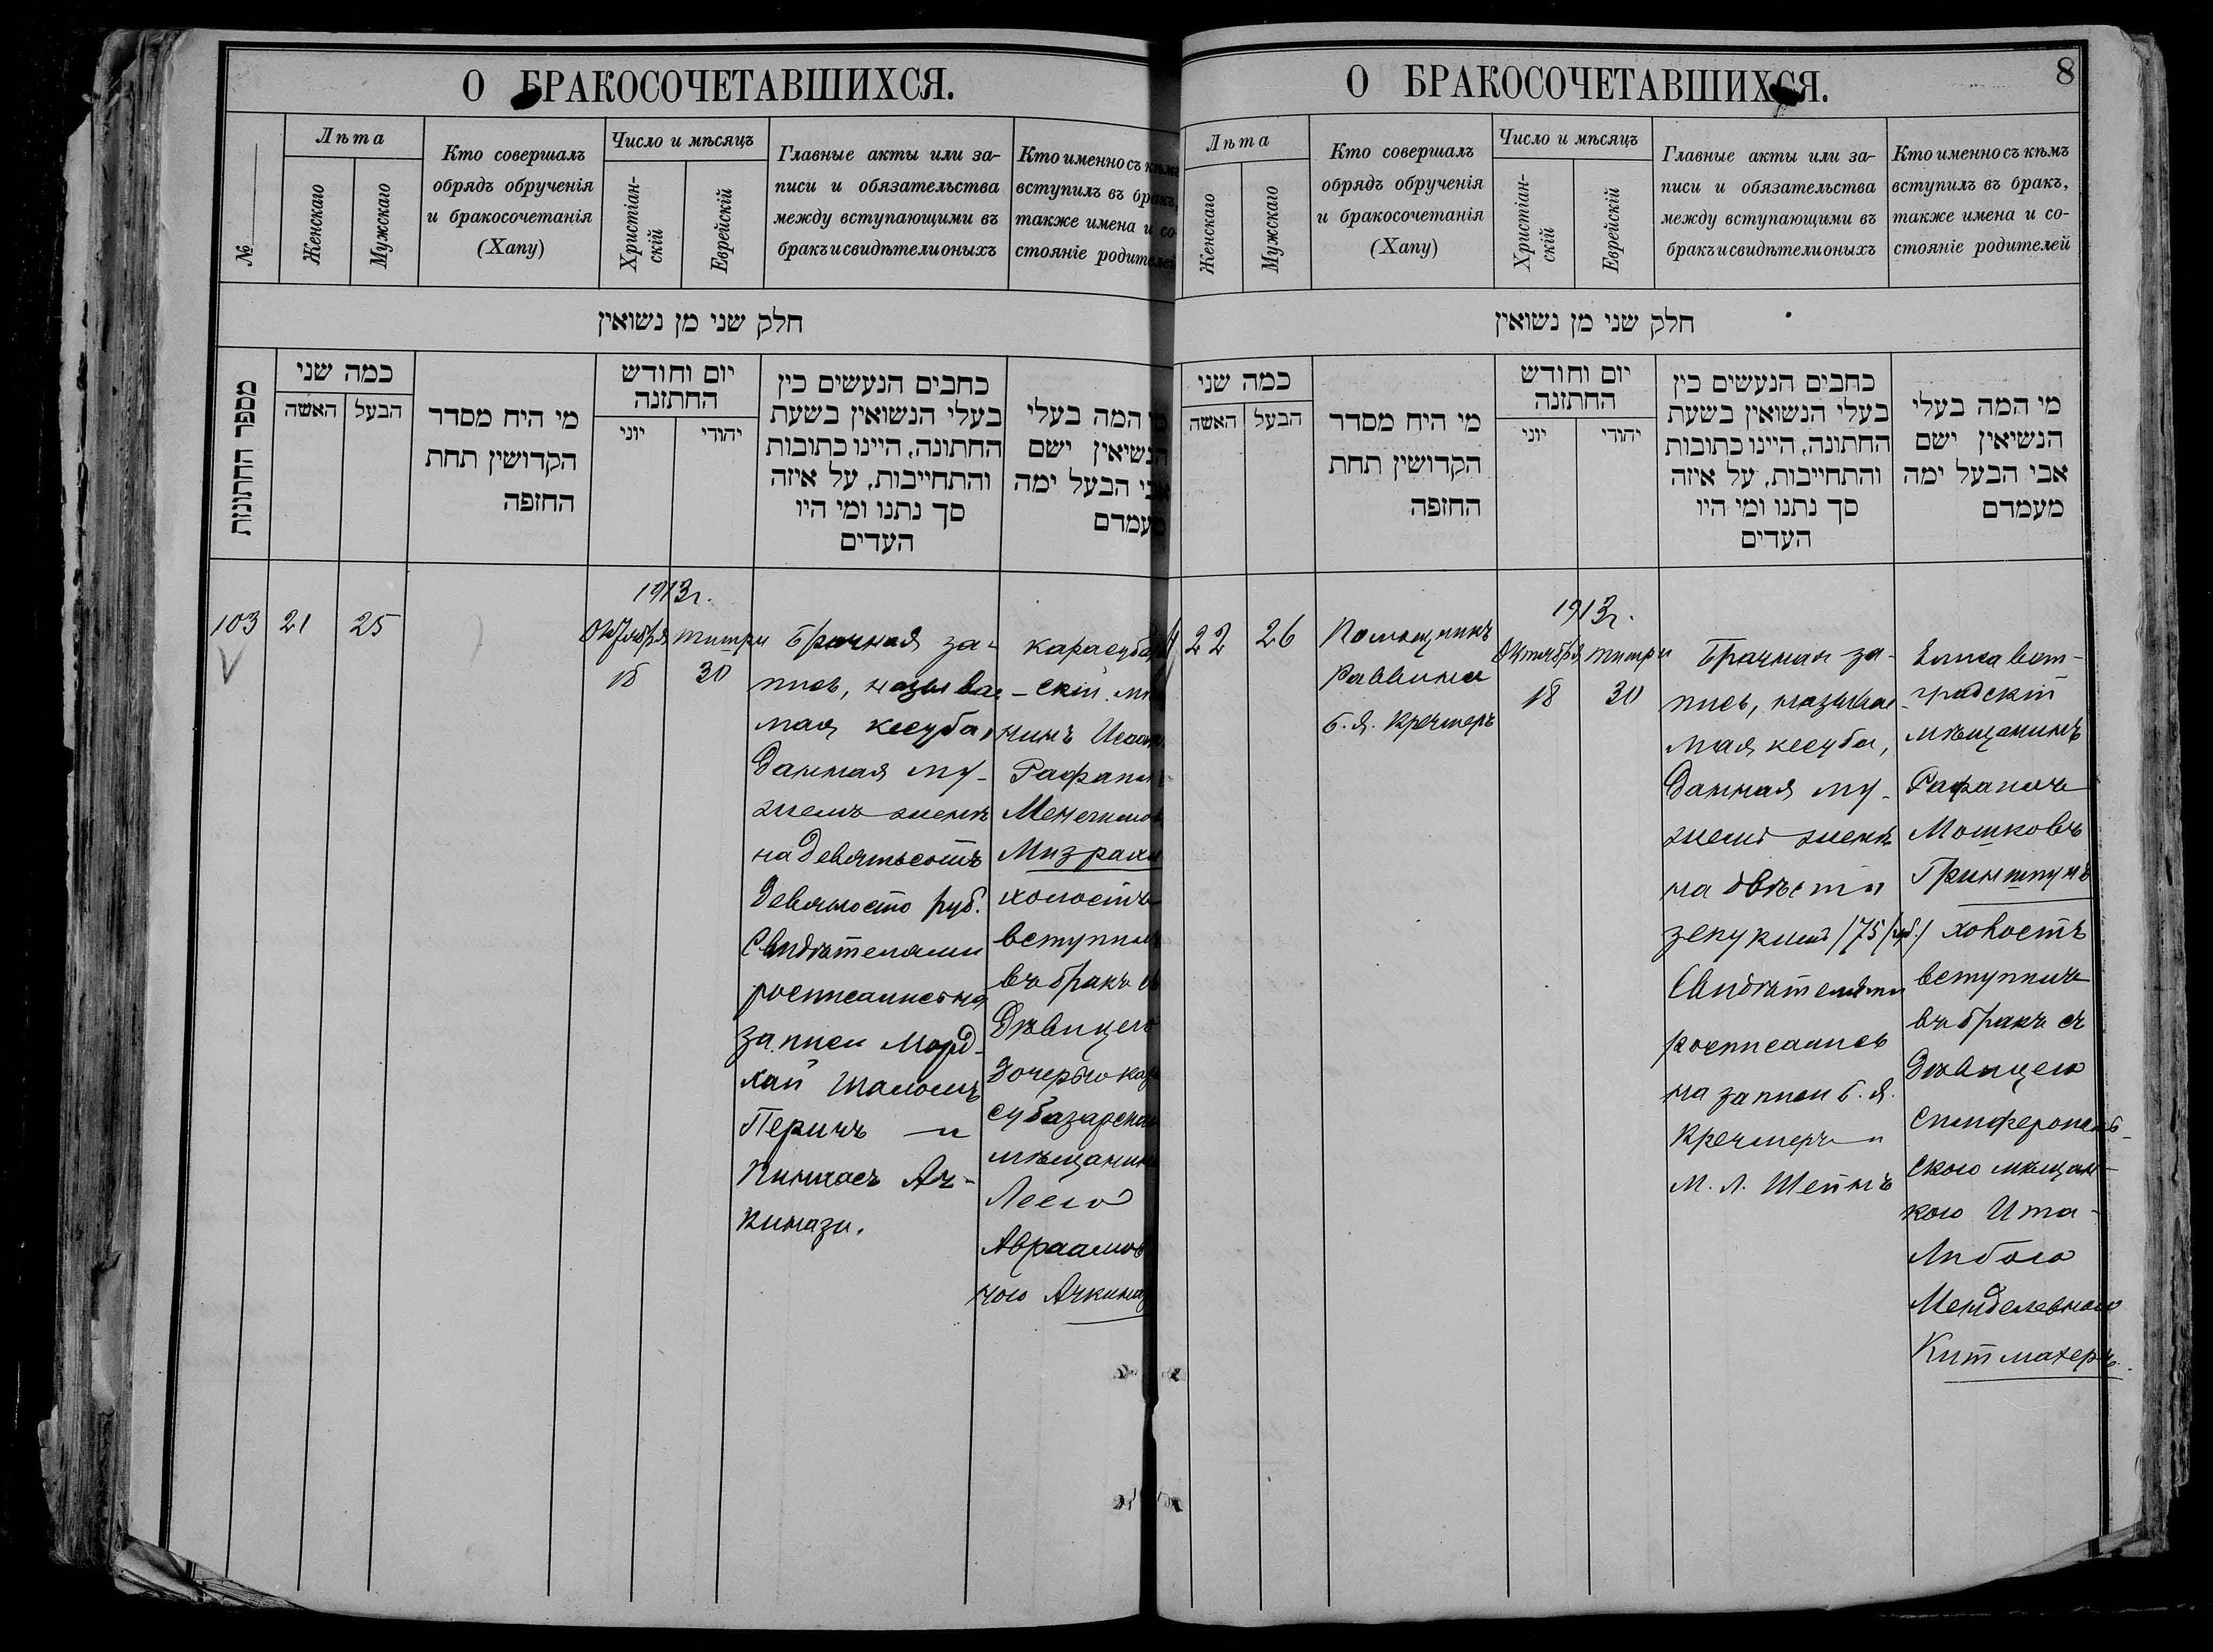 О БРАКОСОЧЕТАВШИХСЯ.
№
Лѣта
Женскаго
Мужскаго
Кто совершалъ
обрядъ обрученія
и бракосочетанія
(Хапу)
Число и мѣсяцъ
Христіан-
скій
Еврейскій
Главные акты или за-
писи и обязательства
между вступающими въ
бракъ и свидѣтели оныхъ
Кто именно съ кѣмъ
вступилъ въ бракъ,
также имена и со-
стояніе родителей
חלק שני מן נשואין
מספר החתונות
כמה שני
האשה
הבעל
מי היח מסדר
הקדושין תחת
החזפה
יום וחודש
החתזנה
יוני
יהודי
כחבים הנעשים כין
בעלי הנשואין בשעת
החתונה, היינו כתובות
והתחייבות, על איזה
סך נתנו ומי היו
העדים
מי המה בעלי
הנשיאין ישם
אבי הבעל ימה
מעמדם
103
21
25
1913 г.
Октября
18
тишри
30
Брачная за-
пись, называе-
мая кесуба,
данная му-
жемъ женѣ
на девятьсотъ
девяносто руб.
Свидѣтелями
росписались на
записи Морд-
хай Шаломъ
Перичъ и
Пинхасъ Ач-
кинази.
Карасубазар
скій мѣ
нинъ Исаакъ
Рафаилъ
Менечимов
Мизрахи
холостъ
вступилъ
въ бракъ съ
дѣвицею
дочерью кара
субазарскаго
мѣщанина
Леею
Авраамов
ною Ачкинази
О БРАКОСОЧЕТАВШИХСЯ.
8
Лѣта
Женскаго
Мужскаго
Кто совершалъ
обрядъ обрученія
и бракосочетанія
(Хапу)
Число и мѣсяцъ
Христіан-
скій
Еврейскій
Главные акты или за-
писи и обязательства
между вступающими въ
бракъ и свидѣтели оныхъ
Кто именно съ кѣмъ
вступилъ въ бракъ,
также имена и со-
стояніе родителей
חלק שני מן נשואין
כמה שני
האשה
הבעל
מי היח מסדר
הקדושין תחת
החזפה
יום וחודש
החתזנה
יוני
יהודי
כחבים הנעשים כין
בעלי הנשואין בשעת
החתונה, היינו כתובות
והתחייבות, על איזה
סך נתנו ומי היו
העדים
מי המה בעלי
הנשיאין ישם
אבי הבעל ימה
מעמדם
22
26
Помощникъ
Раввина
Б. Я. Кречмеръ
1913 г.
Октября
18
тишри
30
Брачная за-
пись, называе
мая кесуба,
данная му-
жемъ женѣ
на двѣсти
зекукимъ (75 руб.)
Свидѣтелями
росписались
на записи Б. Я.
Кречмеръ и
М. Л. Шейнъ
Елисавет-
градскій
мѣщанинъ
Рафаилъ
Мошковъ
Гринштунъ
холостъ
вступилъ
въ бракъ съ
дѣвицею
Симферополь-
скою мѣщан-
кою Ита-
Либою
Менделевною
Китмахеръ.